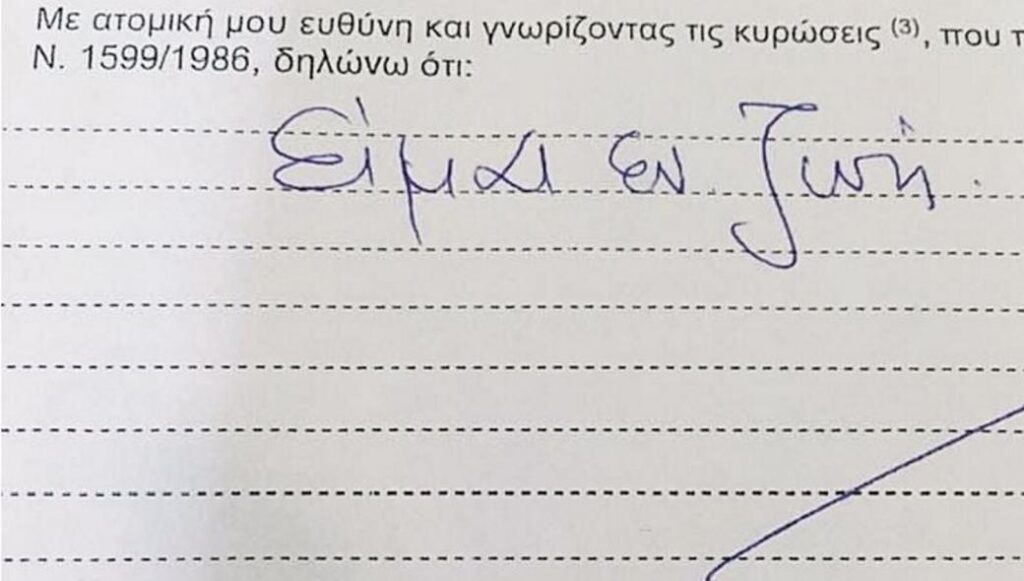 Με ατομική μου ευθύνη και γνωρίζοντας τις κυρώσεις (3), που
Ν. 1599/1986, δηλώνω ότι:
Είμαι εν ζωή.